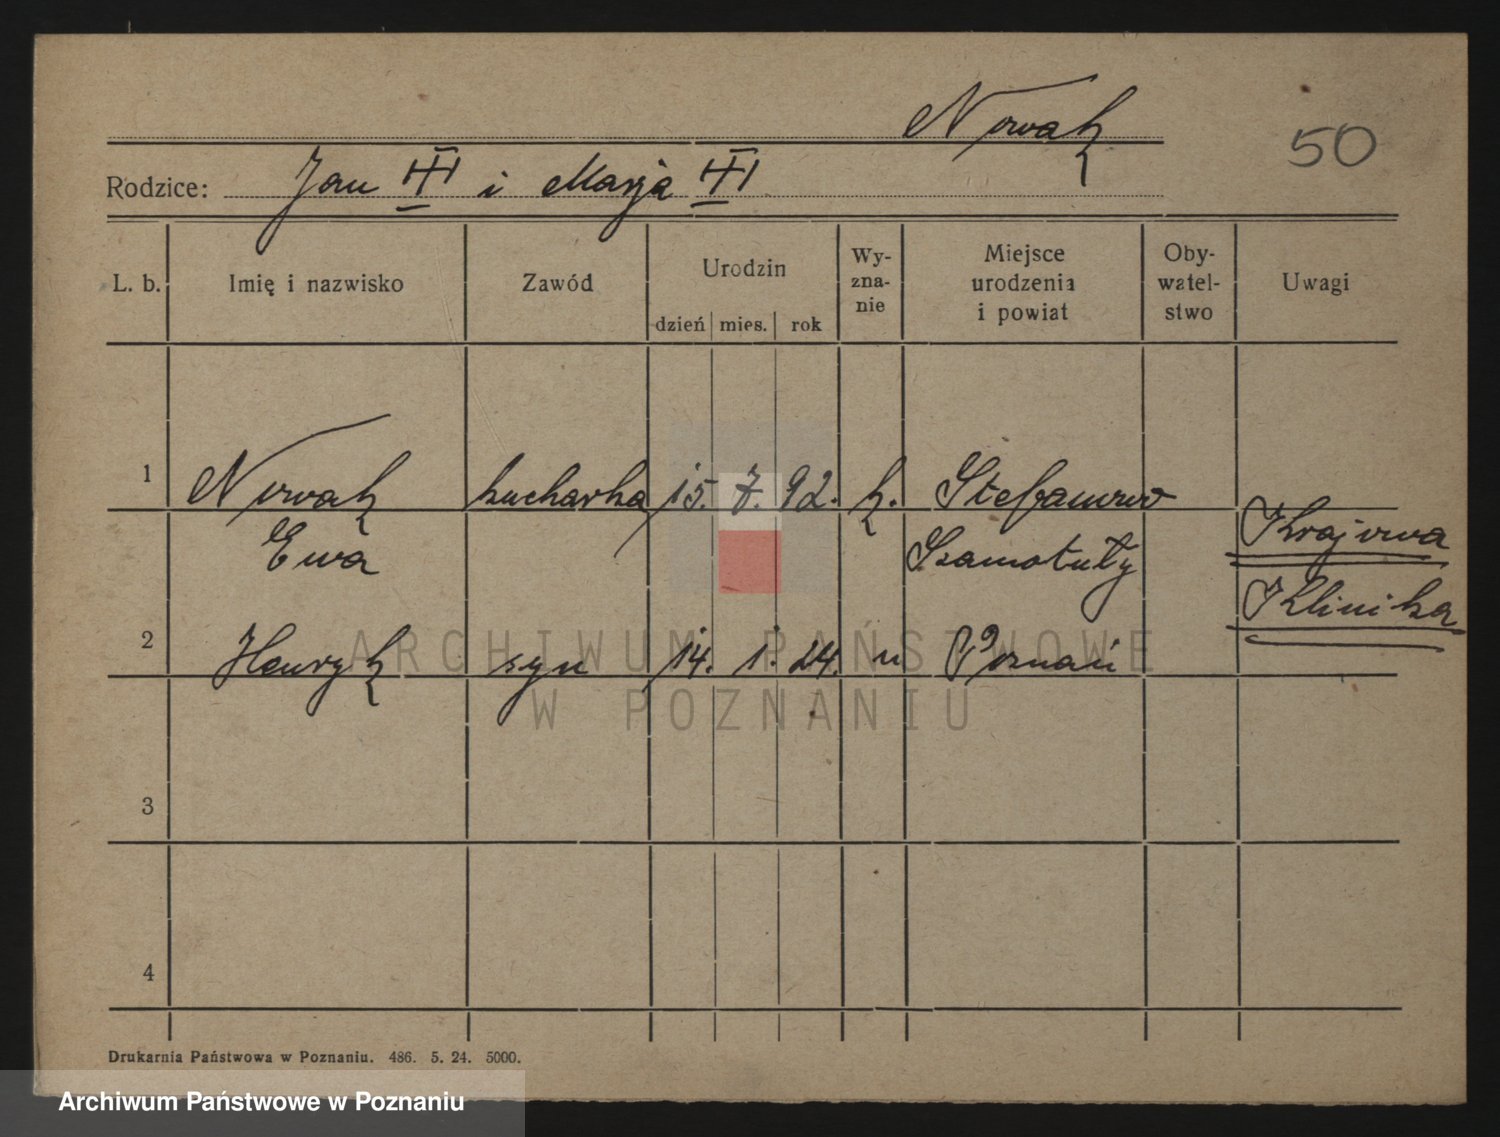 Nowak
50
Rodzice: Jan III i Marja III
L. b. Imię i nazwisko Zawód Urodzin dzień mies. rok Wy-zna-nie Miejsce urodzenia i powiat Oby-watel-stwo Uwagi
1 Nowak kucharka 15. 7. 92. k. Stefanowo
Krajowa
Ewa Szamotuły
Klinika
2 Henryk syn 14. 1. 24. " Poznań
ARCHIWUM PAŃSTWOWE
W POZNANIU
3
4
Drukarnia Państwowa w Poznaniu. 486. 5. 24. 5000.
Archiwum Państwowe w Poznaniu